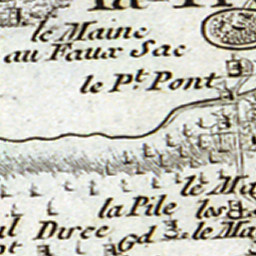 le Maine
au Faux Sac
le Pt Pont
le Ma
la Pile los
Diree Gd le Ma